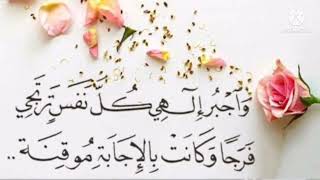 وَاجْبُر إلَـٰهِي كُلَّ نَفْسٍ تَرْتَجِي
فَرَجًا وَكَانَتْ بِالإِجَابَةِ مُوقِنَة ..